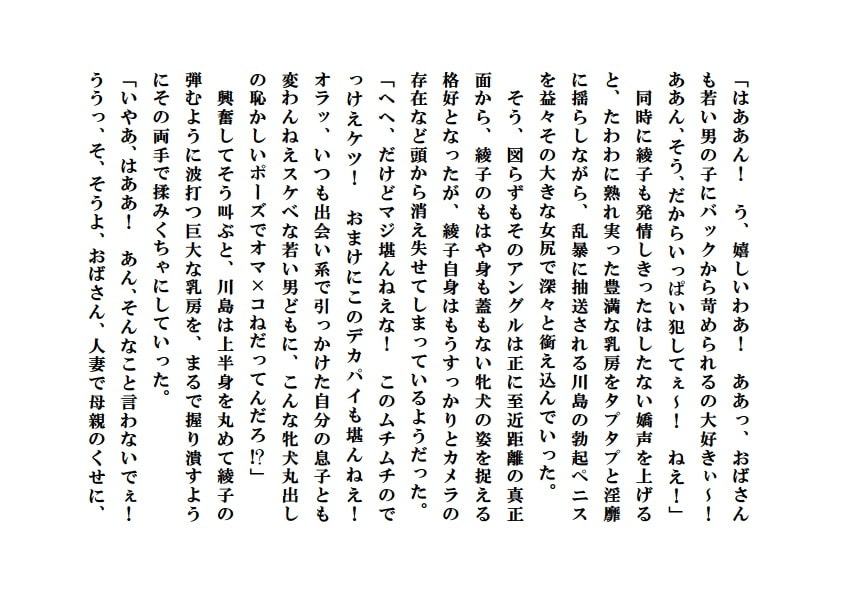 「はああん！　う、嬉しいわあ！　ああっ、おばさん
も若い男の子にバックから苛められるの大好きぃ～！
ああん、そう、だからいっぱい犯してぇ～！　ねえ！」
　同時に綾子も発情しきったはしたない嬌声を上げる
と、たわわに熟れ実った豊満な乳房をタプタプと淫靡
に揺らしながら、乱暴に抽送される川島の勃起ペニス
を益々その大きな女尻で深々と銜え込んでいった。
　そう、図らずもそのアングルは正に至近距離の真正
面から、綾子のもはや身も蓋もない牝犬の姿を捉える
格好となったが、綾子自身はもうすっかりとカメラの
存在など頭から消え失せてしまっているようだった。
「へへ、だけどマジ堪んねえな！　このムチムチので
っけえケツ！　おまけにこのデカパイも堪んねえ！
オラッ、いつも出会い系で引っかけた自分の息子とも
変わんねえスケベな若い男どもに、こんな牝犬丸出し
の恥かしいポーズでオマ×コねだってんだろ⁉」
　興奮してそう叫ぶと、川島は上半身を丸めて綾子の
弾むように波打つ巨大な乳房を、まるで握り潰すよう
にその両手で揉みくちゃにしていった。
「いやあ、はああ！　あん、そんなこと言わないでぇ！
ううっ、そ、そうよ、おばさん、人妻で母親のくせに、